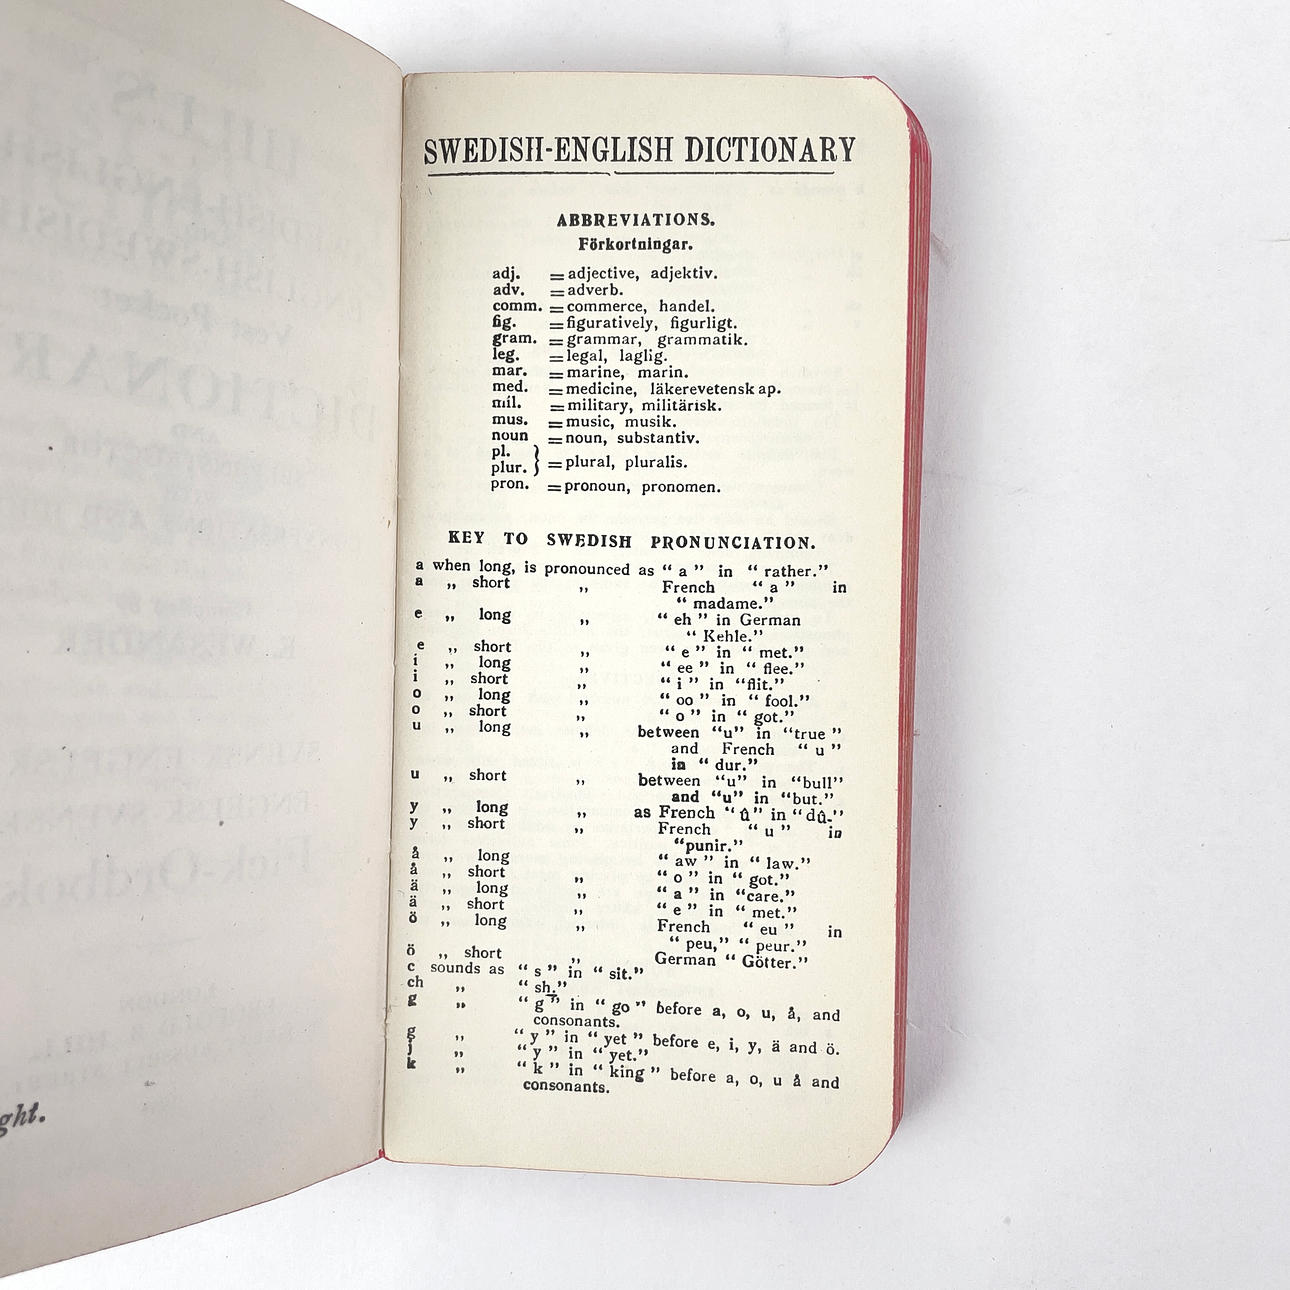 ght.
SWEDISH-ENGLISH DICTIONARY
ABBREVIATIONS.
Förkortningar.
adj. = adjective, adjektiv.
adv. = adverb.
comm. = commerce, handel.
fig. = figuratively, figurligt.
gram. = grammar, grammatik.
leg. = legal, laglig.
mar. = marine, marin.
med. = medicine, läkerevetenskap.
mil. = military, militärisk.
mus. = music, musik.
noun = noun, substantiv.
pl.
plur. } = plural, pluralis.
pron. = pronoun, pronomen.
KEY TO SWEDISH PRONUNCIATION.
a when long, is pronounced as “ a ” in “ rather.”
a „ short „ French “ a ” in
“ madame.”
e „ long „ “ eh ” in German
“ Kehle.”
e „ short „ “ e ” in “ met.”
i „ long „ “ ee ” in “ flee.”
i „ short „ “ i ” in “flit.”
o „ long „ “ oo ” in “ fool.”
o „ short „ “ o ” in “ got.”
u „ long „ between “u” in “true ”
and French “ u ”
in “ dur.”
u „ short „ between “u” in “bull”
and “u” in “but.”
y „ long „ as French “ û” in “ dû.”
y „ short „ French “ u ” in
“punir.”
å „ long “ aw ” in “ law.”
å „ short „ “ o ” in “ got.”
ä „ long „ “ a ” in “care.”
ä „ short „ “ e ” in “ met.”
ö „ long „ French “ eu ” in
“ peu,” “ peur.”
ö „ short „ German “ Götter.”
c sounds as “ s ” in “ sit.”
ch „ “ sh.”
g „ “ g ” in “ go ” before a, o, u, å, and
consonants.
g „ “ y ” in “ yet ” before e, i, y, ä and ö.
j „ “ y ” in “ yet.”
k „ “ k ” in “ king ” before a, o, u å and
consonants.